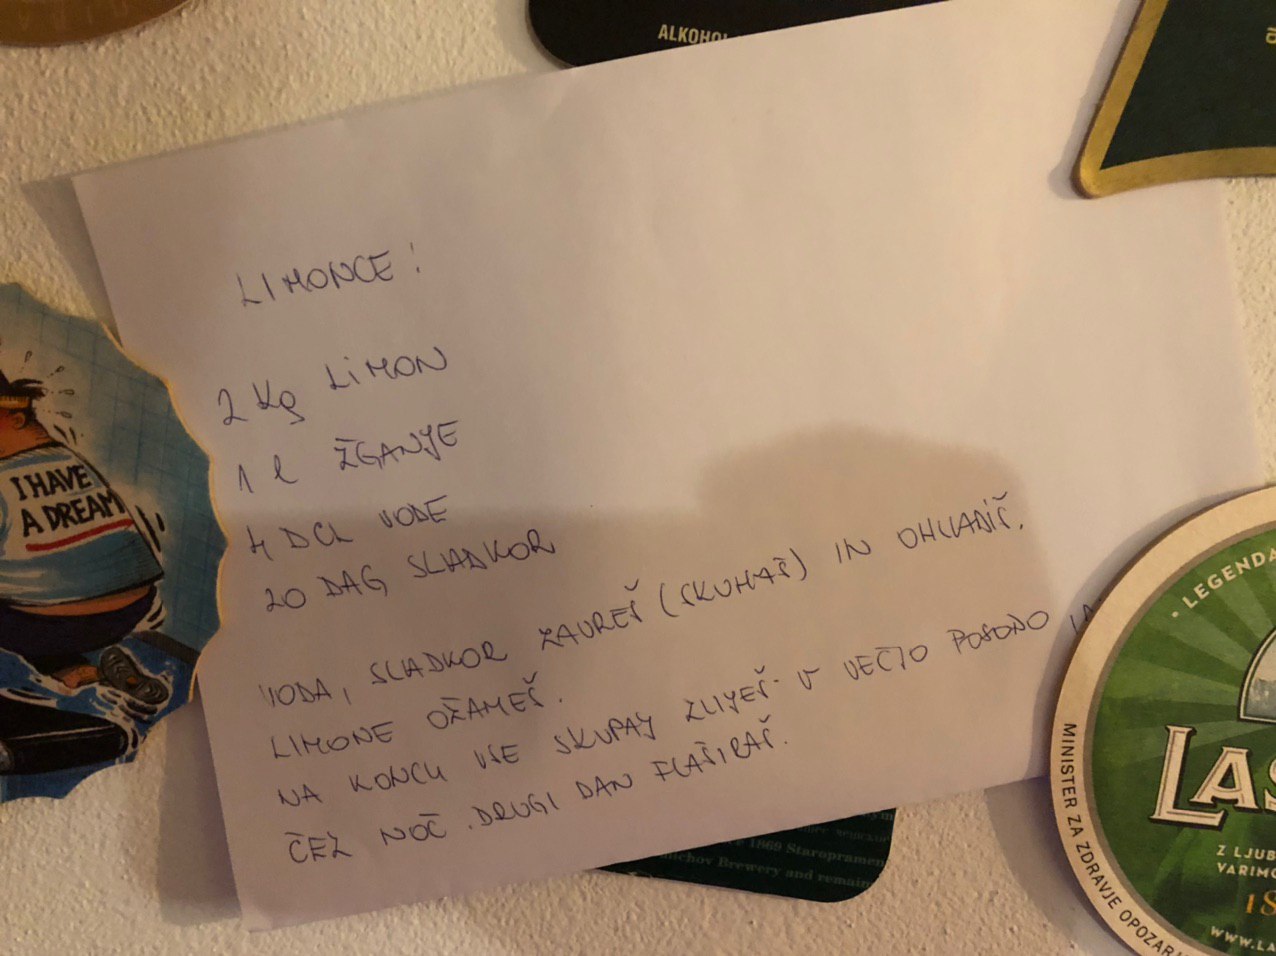 ALKOHOL
LIMONCE!
2 Kg LIMON
1 l ŽGANJE
4 DCL VODE
20 DAG SLADKOR
VODA, SLADKOR ZAVREŠ (SKUHAŠ) IN OHLADIŠ.
LIMONE OŽAMEŠ.
NA KONCU VSE SKUPAJ ZLIJEŠ V VEČJO POSODO
ČEZ NOČ. DRUGI DAN FLAŠIRAŠ.
I HAVE
A DREAM
1869 Staropramen
Brewery and remain
· LEGENDA
LAŠ
Z LJUB
VARIMO
18
WWW.LA
MINISTER ZA ZDRAVJE OPOZAR